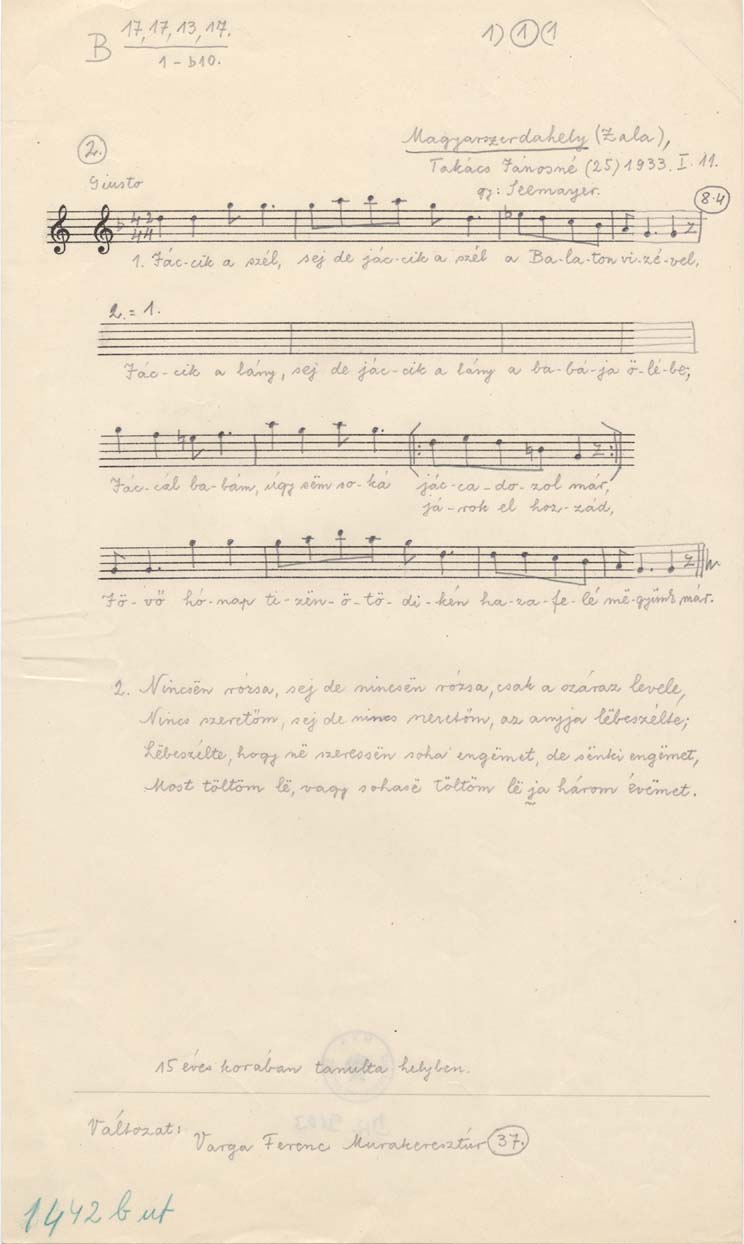 B 17, 17, 13, 17.
1 – b10.
1) (1) (1
2.
Magyarszerdahely (Zala),
Takács Jánosné (25) 1933. I. 11.
Giusto
gy: Seemayer.
8.4
4 2
4 4
1. Jác-cik a szél, sej de jác-cik a szél a Ba-la-ton vi-zé-vel,
2. = 1.
Jác-cik a lány, sej de jác-cik a lány a ba-bá-ja ö-lé-be;
Jác-cál ba-bám, úgy sëm so-ká jác-ca-do-zol már,
já-rok el hoz-zád,
Jö-vő hó-nap ti-zën-ö-tö-di-kén ha-za-fe-lé më-gyünk már.
2. Nincsën rózsa, sej de nincsën rózsa, csak a száraz levele,
Nincs szeretőm, sej de nincs szeretőm, az anyja lëbeszélte;
Lëbeszélte, hogy në szeressën soha engëmet, de sënki engëmet,
Most töltöm lë, vagy sohasë töltöm lë ja három évëmet.
15 éves korában tanulta helyben.
Változat: Varga Ferenc Murakeresztúr 37.
1442 b ut